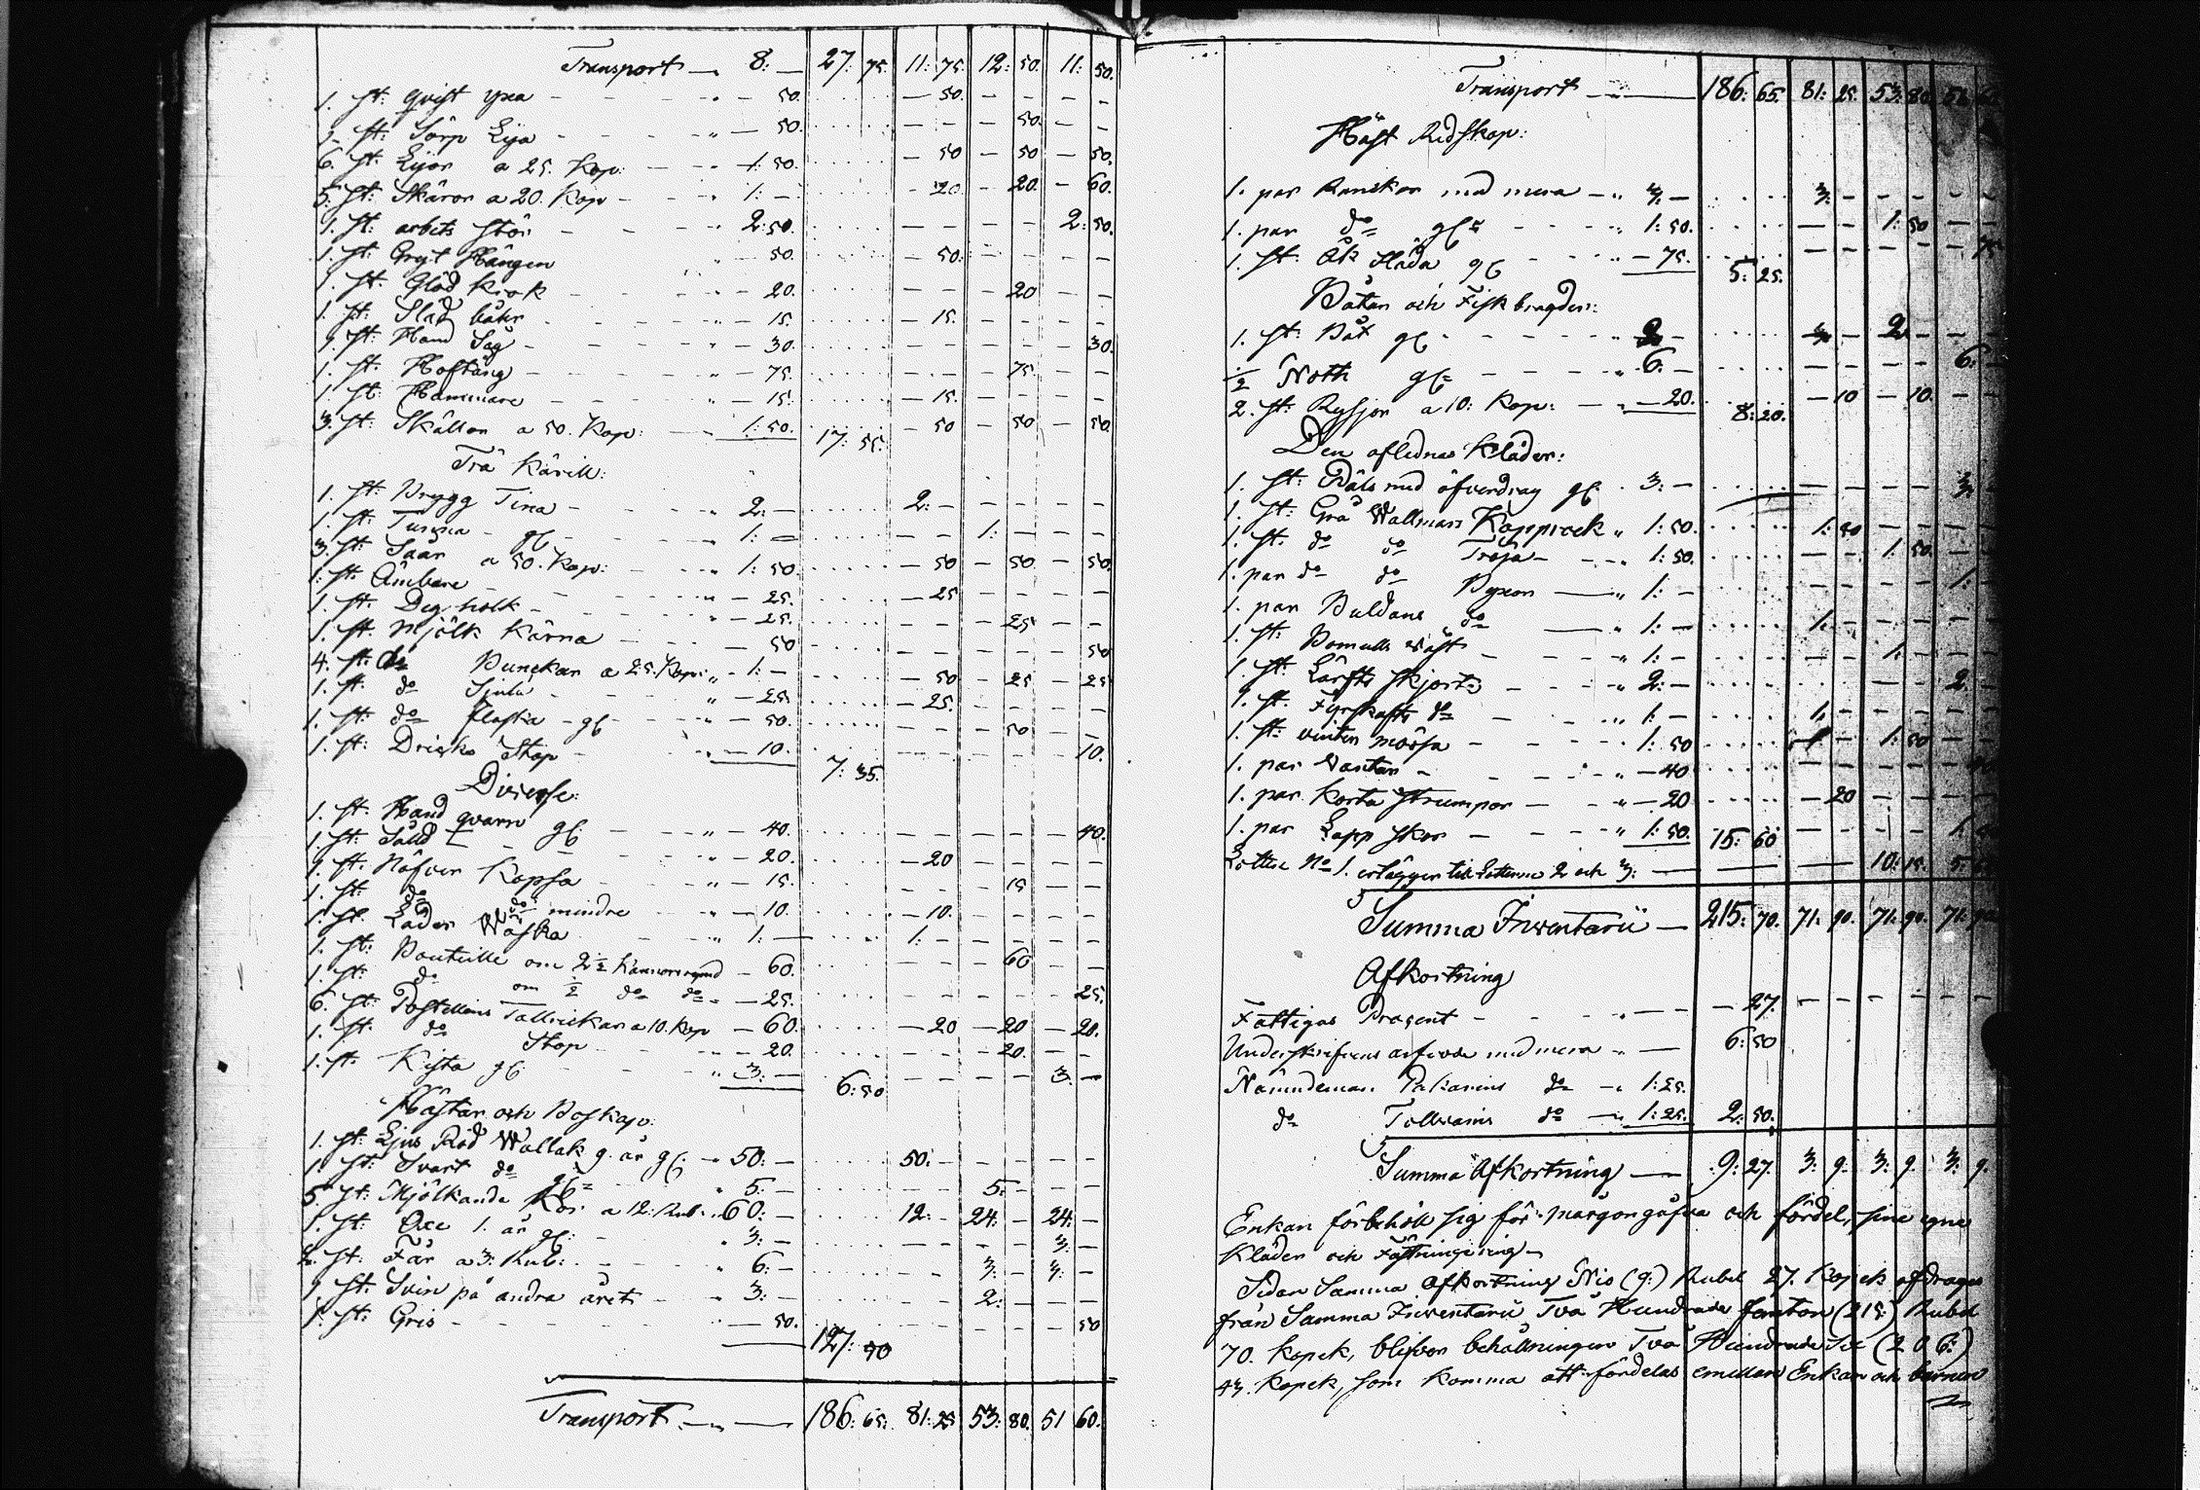 Transport — 8: — 27: 75. 11: 75. 12: 50. 11: 50.
1. st: qvist yxa - - - 50. - 50. - - - -
1. st: Sörp Lya - - - 50. - - - 50. - -
6. st: Lijor a 25. Kop: - 1: 50. - 50 - 50 - 50.
5. st: Skäror a 20. Kop - - 1: - - 20 - 20. - 60.
1. st: arbets stör - - - 2: 50. - - - - 2: 50.
1. st: Gryt Hängen - 50. - 50: - - - -
1. st: Glöd krok - - - 20. - - - 20 - -
1. st: båhr - - - 15. - 15. - - - -
1. st: Hand Såg - - - 30. - - - - - 30.
1. st: Hoftång - - - 75. - - - 75. - -
1. st: Hammare - - - 15. - 15. - - - -
3. st: Skällor a 50. Kop: - 1: 50. 17: 55. - 50 - 50 - 50.
Trä Kärill:
1. st: Brygg Tina - - - 2: - 2: - - - - -
1. st: Tunna - gl - 1: - - - 1: - - -
3. st: Såår a 50. Kop: - 1: 50. - 50 - 50. - 50.
1. st. Ämbare - - - 25. - 25 - - - -
1. st. Deg holk - - - 25. - - - 25 - -
1. st. Mjölk Kärna - - - 50 - - - - - 50
4. st. do Bunckar a 25. Kop: - 1: - - 50 - 25 - 25
1. st. do - 25. - 25. - - - -
1. st: do flaska - gl - - 50. - - - 50 - -
1. st: Dricks Stop - - 10. 7: 35. - - - - - 10.
Diverse:
1. st. Hand qvarn gl: - - 40. - - - - - 40.
1. st: Såld - - - 20. - 20 - - - -
1. st: Näfver Kopsa - - - 15. - - - 15 - -
1. st: do do mindre - - 10. - 10. - - - -
1. st. Läder Wäska - - 1: - 1: - - - - -
1. st: Bouteille om 2 1/2 Kannors rymd - 60. - - - 60 - -
1. st: do om 1/2 do do - 25. - - - - - 25.
6. st: Postellins Tallrickar a 10. Kop - 60. - 20 - 20 - 20.
1. st: do Stop - - 20. - - - 20. - -
1. st. Kista gl. - - 3: - 6: 50 - - - - 3: -
Hästar och Boskap:
1. st: Ljus Röd Wallak 9. år gl. - 50: - 50: - - - - -
1. st: Svart do gl - 5: - - - 5: - - -
5. st: Mjölkande Kor a 12. Rub: - 60: - 12: - 24: - 24: -
1. st: Oxe 1. år gl: - - 3: - - - - - 3: -
2. st: Får a 3: Rub: - - 6: - - - 3: - 3: -
1. st: Svin på andra året - - 3: - - - 2: - - -
1. st: Gris - - - 50. 127: 50 - - - - - 50
Transport - — 186: 65: 81: 25 53: 80. 51 60.
Transport — 186: 65. 81: 25. 53: 80
Häst Redskap:
1. par Ranckor med mera - 3: - 3: - - - - -
1. par do gl - - - 1: 50. - - 1: 50 - -
1. st: Åk Släda gl - - - 75. 5: 25. - - - - - 75
Båtar och Fisk bragder:
1. st: Båt gl - - - 2 - 2 - - -
1/2 Noth gl - - - 6. - - - - - 6: -
2. st: Rysjor a 10: Kop: - - 20. 8: 20. - 10 - 10. - -
Den aflidnas Kläder:
1. st: Päls med öfverdrag gl. 3: - - - - - 3: -
1. st: Grå Wallmars Kapprock - 1: 50. 1: 50 - - - -
1. st. do do Tröja - - 1: 50. - - 1: 50. - -
1. par do do Byxor - 1: - - - - - 1: -
1. par Buldans do - 1: - 1: - - - - -
1. st: Bomulls väst - - 1: - - - 1: - - -
1. st: Lärfts skjorta - - 2: - - - - - 2: -
1. st. Fyrskafts do - - 1: - 1: - - - - -
1. st: vinter mössa - - - 1: 50 - - 1: 50 - -
1. par Vantar - - - - 40 - - - - -
1. par. Korta strumpor - - - 20 - 20 - - - -
1. par Lapp skor - - - 1: 50. 15: 60 - - - - 1:
Lotten No 1. erlägger till Lotterne 2 och 3: — — — 10: 15. 5:
Summa Inventarii — 215: 70. 71: 90. 71: 90. 71: 90
Afkortning
Fattigas Procent - - - 27. - - - - - -
Underskrifvens arfvode med mera - — 6: 50
Nämndeman Pakarins do - 1: 25.
do do - 1: 25. 2: 50.
Summa Afkortning — 9: 27. 3: 9. 3: 9. 3: 9.
Enkan förbehöll sig för morgongåfva och fördel, sine egne
Kläder och Fästningering -
Sedan Samma Afkortning Nio (9:) Rubel 27. Kopek afdrages
från Samma Inventarii Två Hundrade femton (215:) Rubel
70. Kopek, blifver behållningen Två Hundrade Sex (206:)
43. Kopek, som komma att fördelas emellan Enkan och barnen